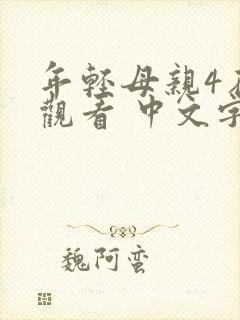 年輕母親4
觀看 中文字
魏阿蛮